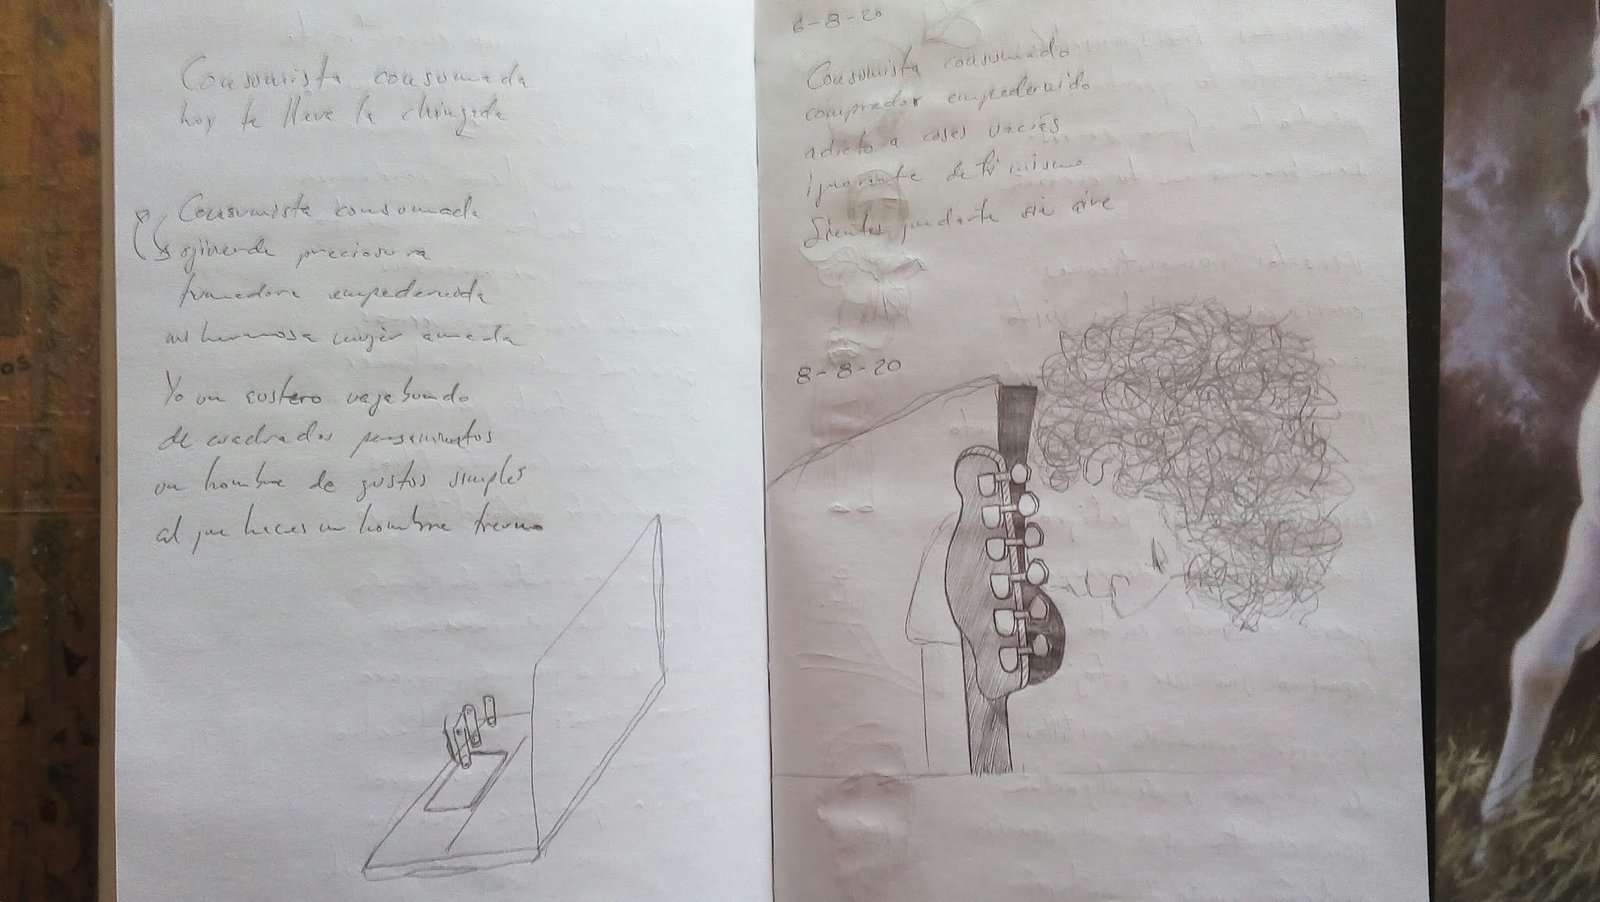 Consumista consumada
hoy te lleve la chingada
Consumista consumada
preciosura
fumadora empedernida
mi hermosa mujer amada
Yo un costero vagabundo
de cuadrados pensamientos
un hombre de gustos simples
al que haces un hombre
6-8-20
Consumista consumado
comprador empedernido
adicto a cosas
ignorante de ti mismo
Sientes quedarte sin aire
8-8-20